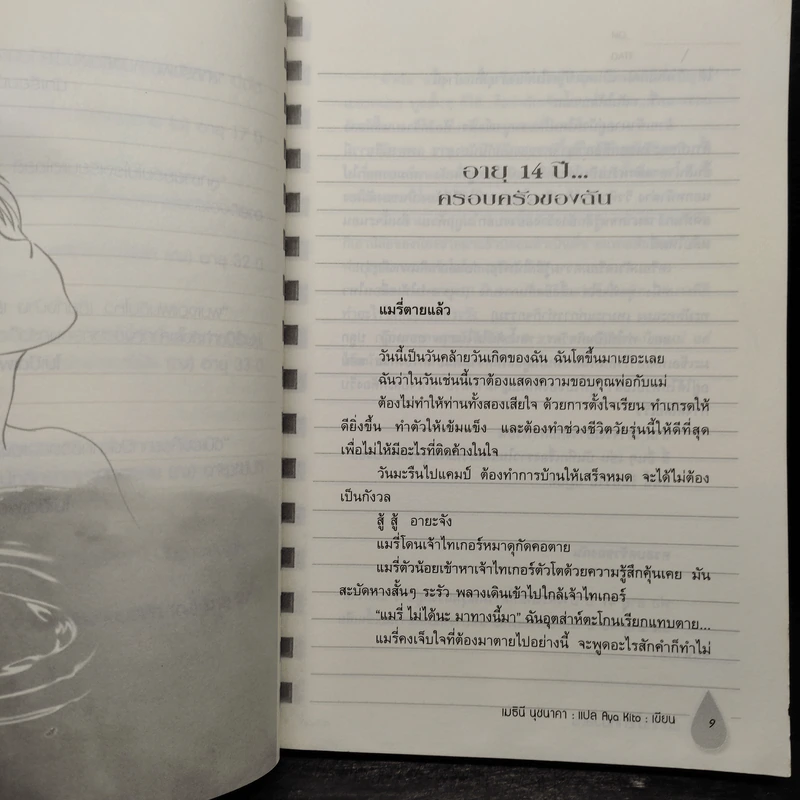 อายุ 14 ปี...
ครอบครัวของฉัน
แมรี่ตายแล้ว
วันนี้เป็นวันคล้ายวันเกิดของฉัน ฉันโตขึ้นมาเยอะเลย
ฉันว่าในวันเช่นนี้เราต้องแสดงความขอบคุณพ่อกับแม่
ต้องไม่ทำให้ท่านทั้งสองเสียใจ ด้วยการตั้งใจเรียน ทำเกรดให้
ดียิ่งขึ้น ทำตัวให้เข้มแข็ง และต้องทำช่วงชีวิตวัยรุ่นนี้ให้ดีที่สุด
เพื่อไม่ให้มีอะไรที่ติดค้างในใจ
วันมะรืนไปแคมป์ ต้องทำการบ้านให้เสร็จหมด จะได้ไม่ต้อง
เป็นกังวล
สู้ สู้ อายะจัง
แมรี่โดนเจ้าไทเกอร์หมาดุกัดคอตาย
แมรี่ตัวน้อยเข้าหาเจ้าไทเกอร์ตัวโตด้วยความรู้สึกคุ้นเคย มัน
สะบัดหางสั้นๆ ระรัว พลางเดินเข้าไปใกล้เจ้าไทเกอร์
"แมรี่ ไม่ได้นะ มาทางนี้มา" ฉันอุตส่าห์ตะโกนเรียกแทบตาย...
แมรี่คงเจ็บใจที่ต้องมาตายไปอย่างนี้ จะพูดอะไรสักคำก็ทำไม่
เมธินี นุชนาคา : แปล Aya Kito : เขียน 9